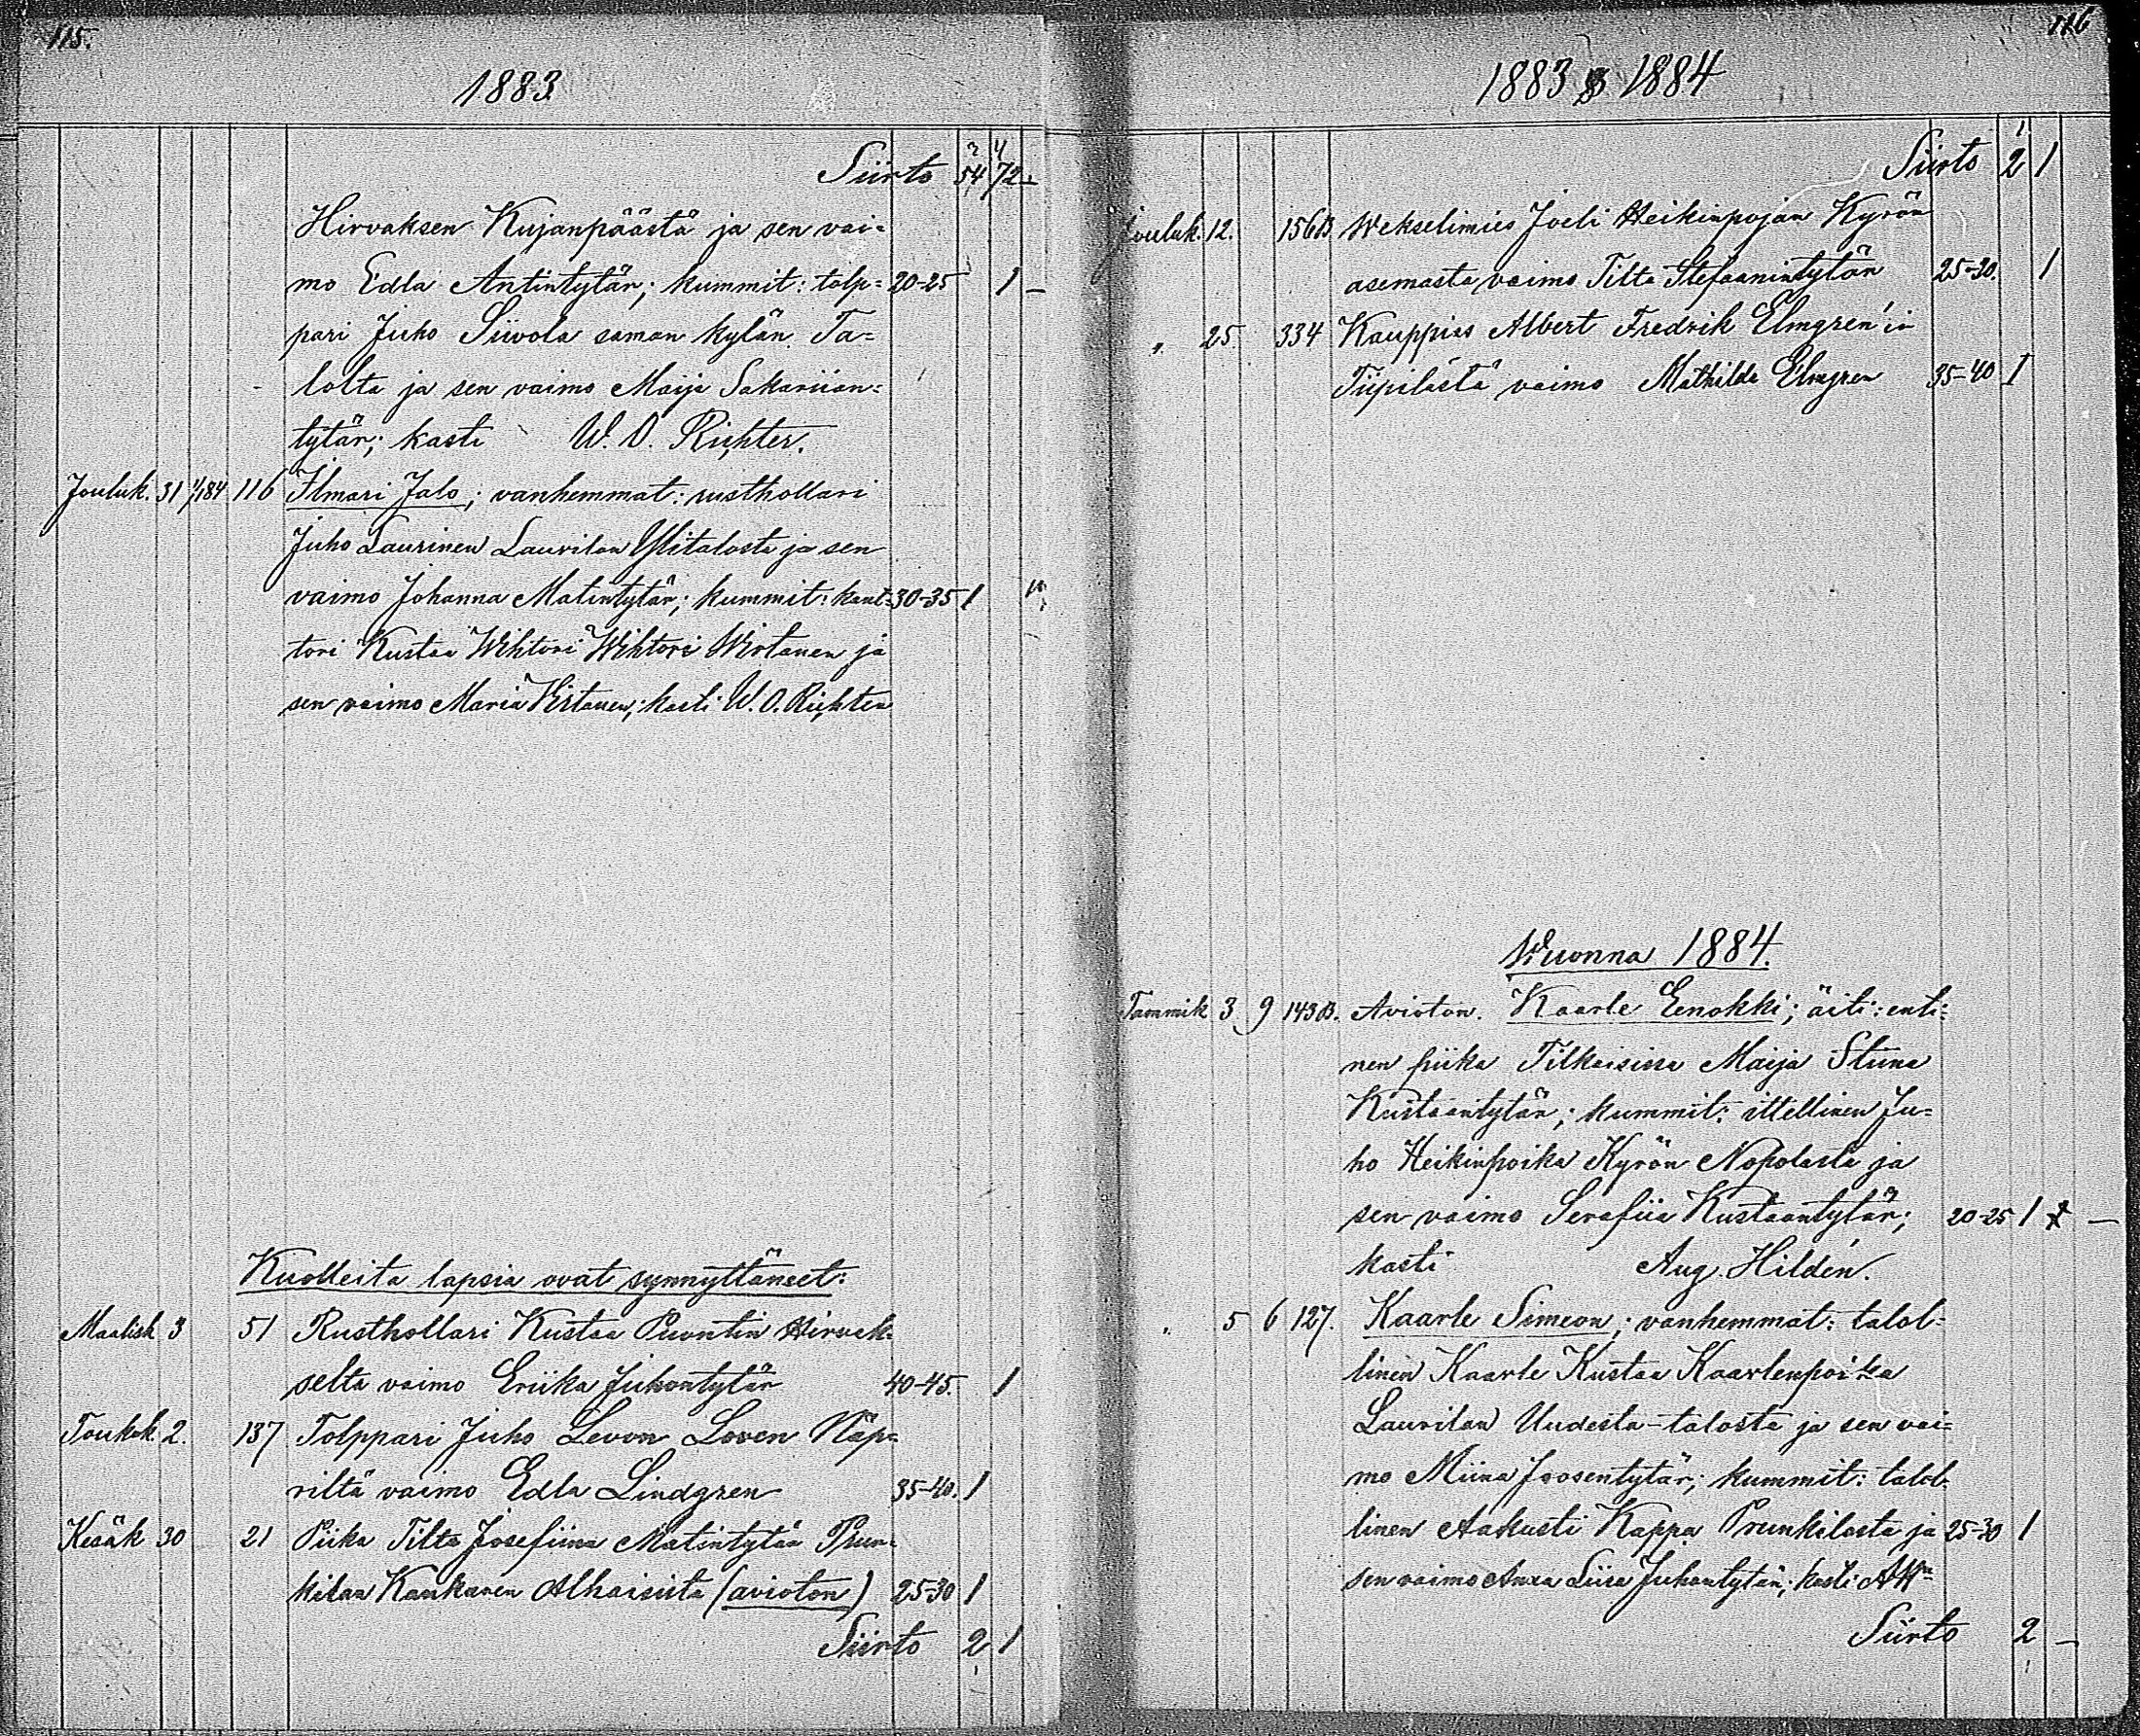 115.
1883
Siirto 54 72 -
Hirvaksen Kujanpäästä ja sen vai=
mo Edla Antintytär; kummit: tolp= 20-25 1 -
pari Juho Siivola saman kylän Ta=
lolta ja sen vaimo Maija Sakariian=
tytär; kasti W. O. Richter.
Jouluk. 31 1/1 84 116 Ilmari Jalo; vanhemmat: rusthollari
Juho Laurinen Laurilan Ylitalosta ja sen
vaimo Johanna Matintytär; kummit: kant= 30-35 1
tori Kustaa Wihtori Wihtori Wirtanen ja
sen vaimo Maria Virtanen; kasti W. O. Richter
Kuolleita lapsia ovat synnyttäneet:
Maalisk 3 51 Rusthollari Kustaa Puontin Hirvak=
selta vaimo Eriika Juhontytär 40-45. 1
Toukok. 2. 137 Tolppari Juho Levon Loven Näp=
riltä vaimo Edla Lindgren 35-40. 1
Kesäk 30 21 Piika Tilta Josefiina Matintytär Prun=
kilan Kankaren Alhaisista (avioton) 25-30 1
Siirto 2 1
116
1883 & 1884
Siirto 2 1
Jouluk. 12. 156B Wekselimies Joeli Heikinpojan Kyrön
asemasta vaimo Tilta Stefaanintytär 25-30. 1
„ 25 334 Kauppias Albert Fredrik Elmgren'in
Tiipilästä vaimo Mathilda Elmgren 35-40 1
Wuonna 1884.
Tammik 3 9 143B. Avioton. Kaarle Eenokki; äiti: enti=
nen piika Tilkaisissa Maija Stiina
Kustaantytär; kummit: ittellinen Ju=
ho Heikinpoika Kyrön Nopolasta ja
sen vaimo Serafiia Kustaantytär; 20-25 1 -
kasti Aug. Hildén.
„ 5 6 127. Kaarle Simeon; vanhemmat: talol=
linen Kaarle Kustaa Kaarlenpoika
Laurilan Uudesta-talosta ja sen vai=
mo Miina Joosentytär; kummit: talol=
linen Aakusti Kappa Prunkilasta ja 25-30 1
sen vaimo Anna Liisa Juhontytär; kasti AHn
Siirto 2 -